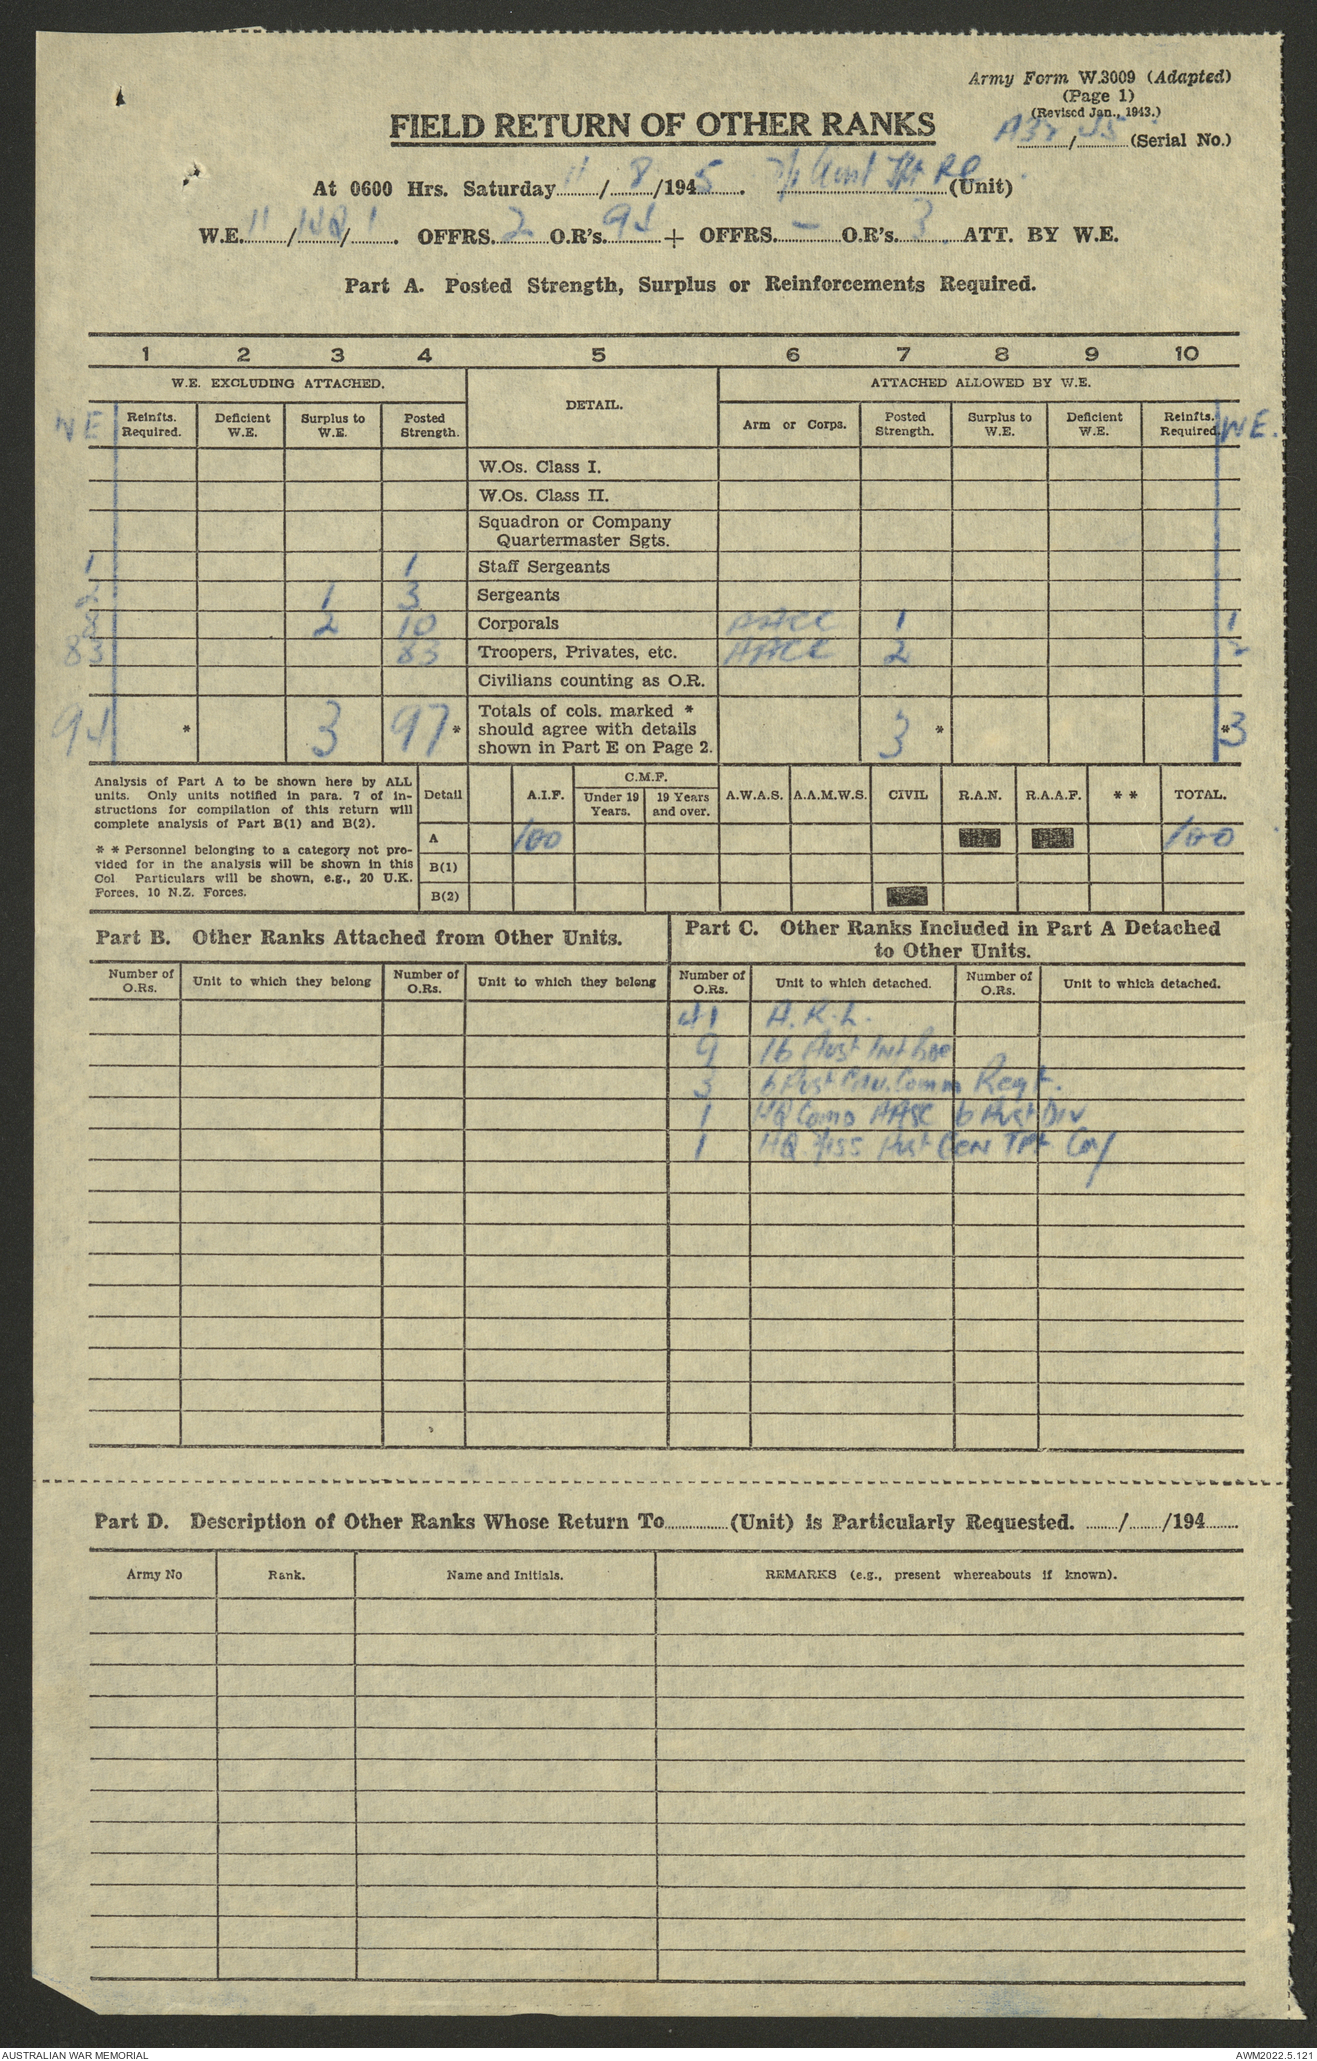 Army Form W.3009 (Adapted)
(Page 1)
(Revised Jan., 1943.)
FIELD RETURN OF OTHER RANKS
/ 45 (Serial No.)
At 0600 Hrs. Saturday 11 / 8 /1945. Aust (Unit)
W.E. 11 / / 1 . OFFRS. 2 O.R's. 94 + OFFRS. - O.R's. 3 ATT. BY W.E.
Part A. Posted Strength, Surplus or Reinforcements Required.
1 2 3 4 5 6 7 8 9 10
W.E. EXCLUDING ATTACHED. DETAIL. ATTACHED ALLOWED BY W.E.
WE Reinfts. Required. Deficient W.E. Surplus to W.E. Posted Strength. Arm or Corps. Posted Strength. Surplus to W.E. Deficient W.E. Reinfts. Required. WE.
W.Os. Class I.
W.Os. Class II.
Squadron or Company
Quartermaster Sgts.
1 1 Staff Sergeants
2 1 3 Sergeants
8 2 10 Corporals AACC 1 1
83 83 Troopers, Privates, etc. AACC 2 2
Civilians counting as O.R.
94 * 3 97 * Totals of cols. marked * should agree with details shown in Part E on Page 2. 3 * * 3
Analysis of Part A to be shown here by ALL
units. Only units notified in para. 7 of in-
structions for compilation of this return will
complete analysis of Part B(1) and B(2).
* * Personnel belonging to a category not pro-
vided for in the analysis will be shown in this
Col Particulars will be shown, e.g., 20 U.K.
Forces, 10 N.Z. Forces.
Detail A.I.F. C.M.F. Under 19 Years. 19 Years and over. A.W.A.S. A.A.M.W.S. CIVIL R.A.N. R.A.A.F. * * TOTAL.
A 100 100
B(1)
B(2)
Part B. Other Ranks Attached from Other Units.
Part C. Other Ranks Included in Part A Detached
to Other Units.
Number of O.Rs. Unit to which they belong Number of O.Rs. Unit to which they belong Number of O.Rs. Unit to which detached. Number of O.Rs. Unit to which detached.
41 A.R.L.
9 16 Aust Inf Bde
3 6 Aust Cav. Comm Regt.
1 HQ Comd AASC 6 Aust Div
1 HQ Aust Gen Tpt Coy
Part D. Description of Other Ranks Whose Return To (Unit) is Particularly Requested. / /194
Army No Rank. Name and Initials. REMARKS (e.g., present whereabouts if known).
AUSTRALIAN WAR MEMORIAL AWM2022.5.121